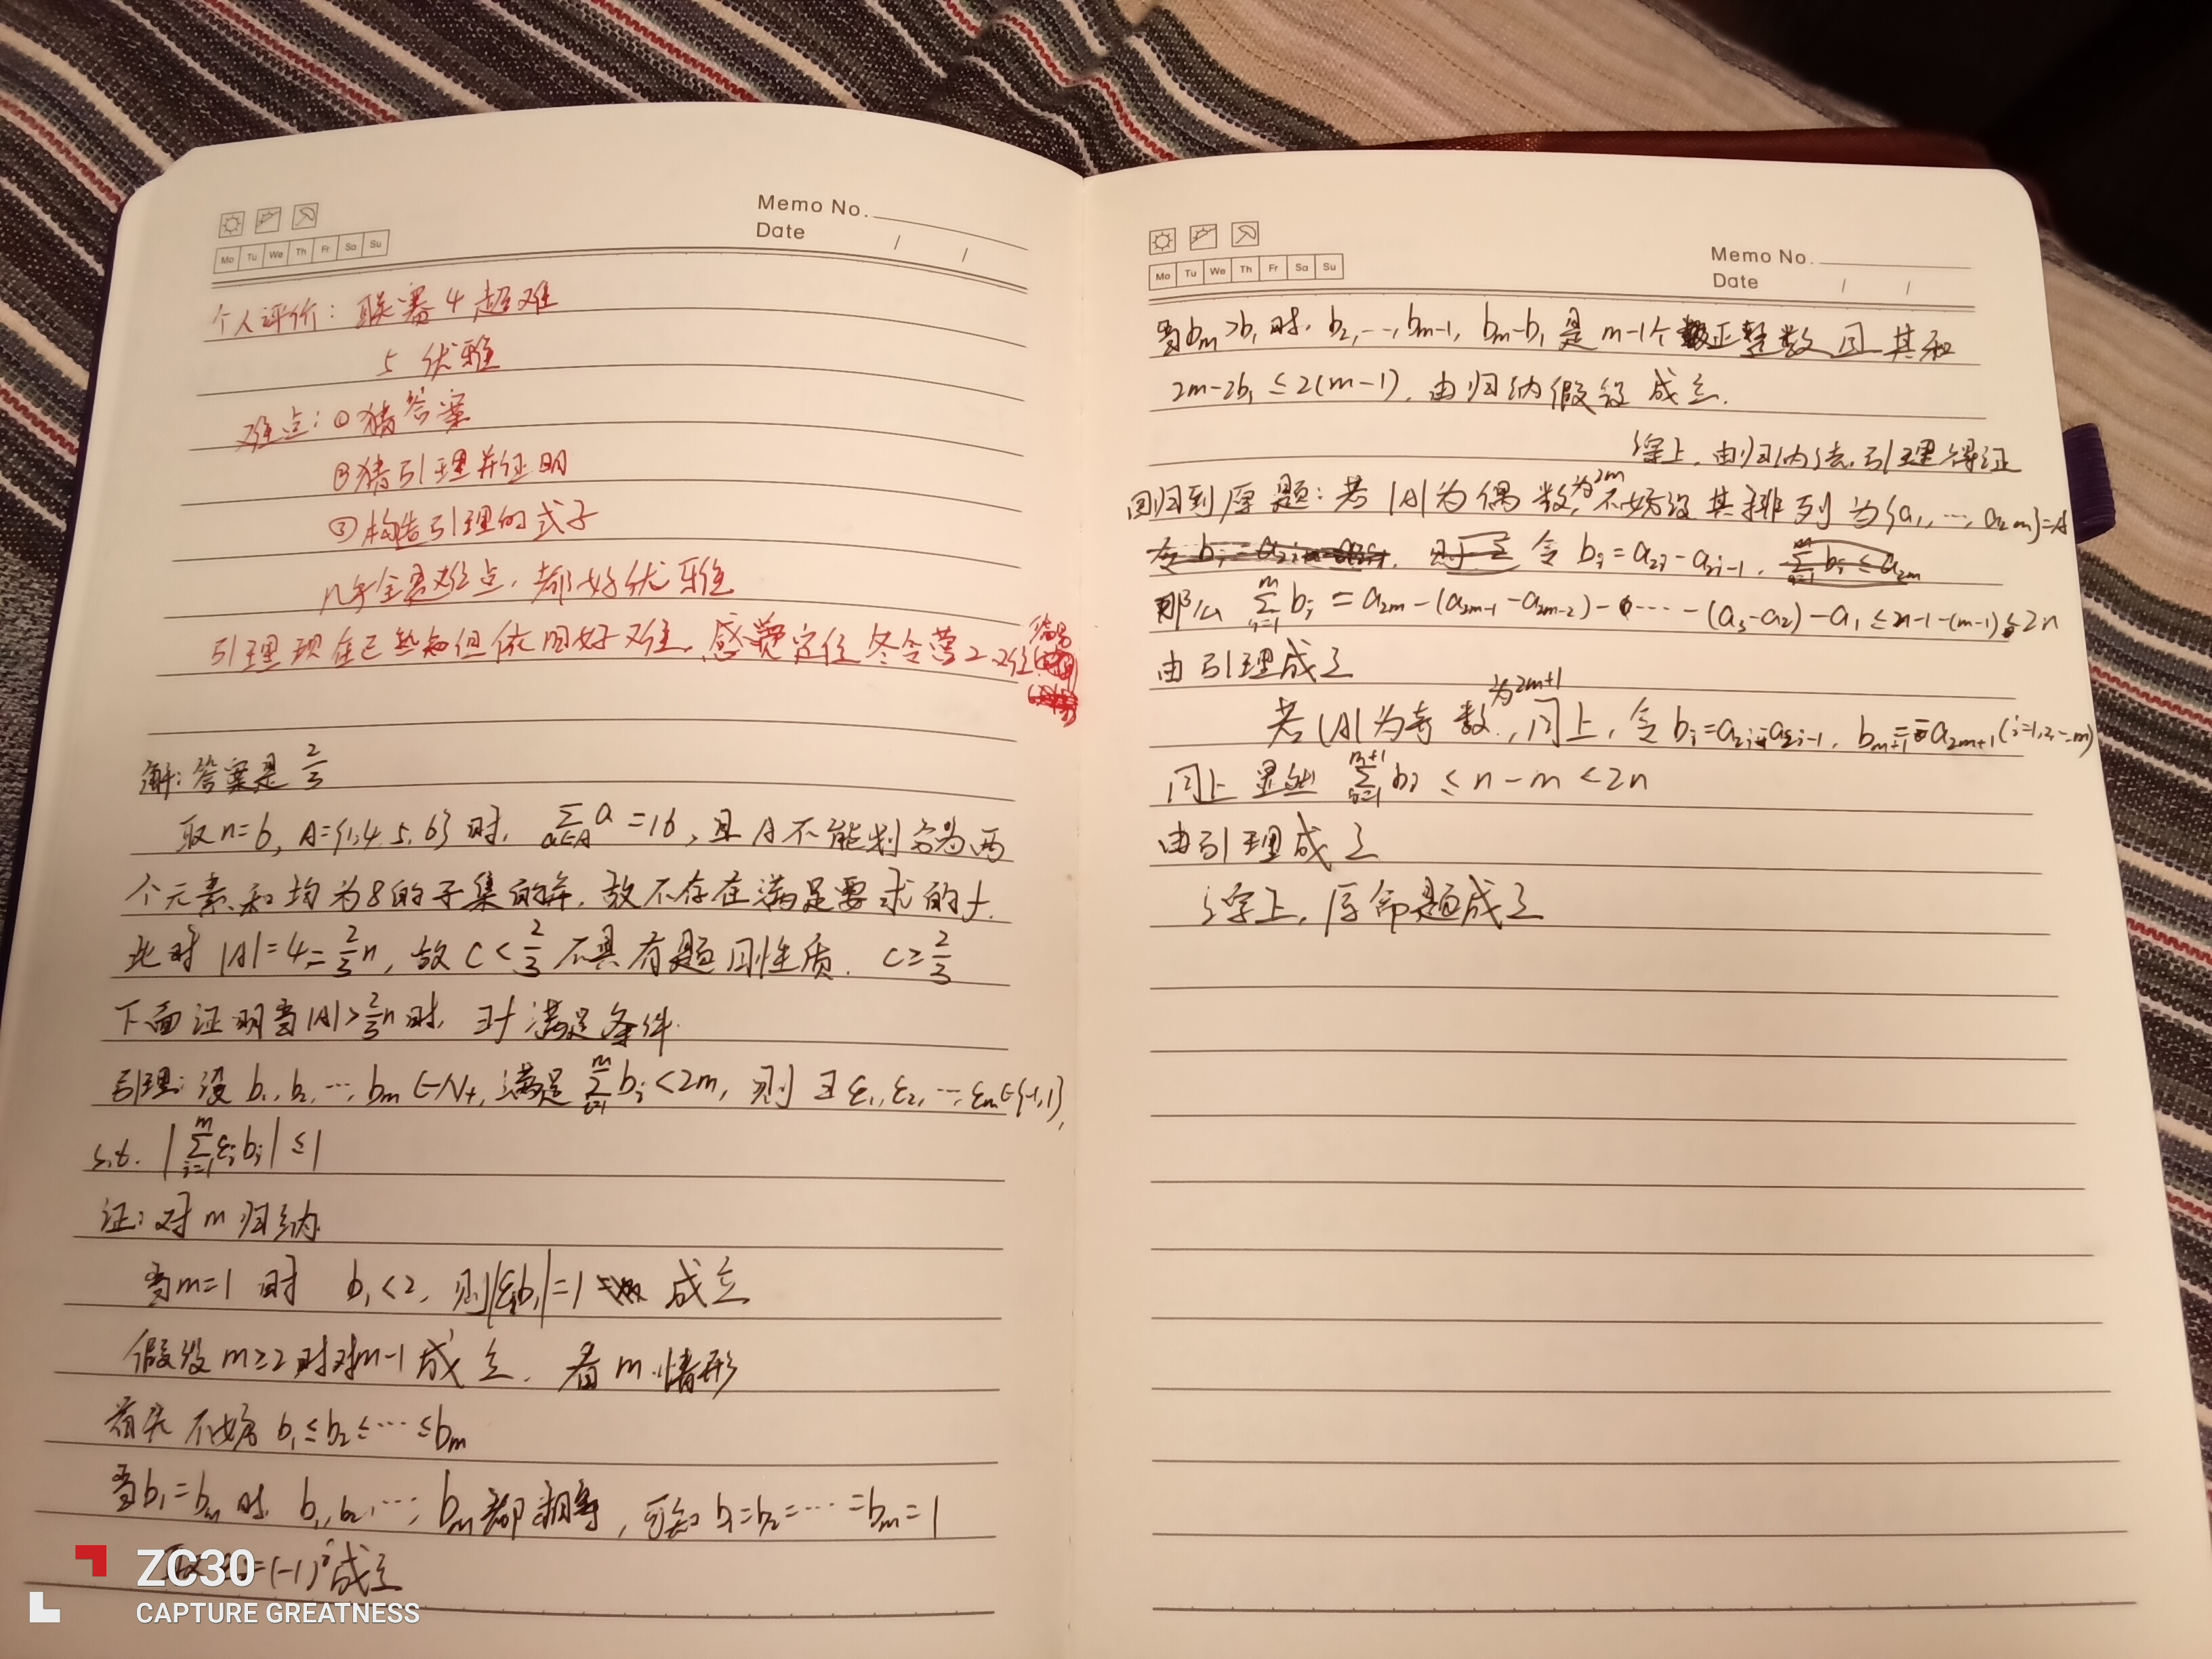 Memo No.
Date / /
Mo Tu We Th Fr Sa Su
个人评价: 联赛4 超难
5 优雅
难点: ①猜答案
②猜引理并证明
③构造引理的式子
几乎全是难点, 都好优雅
引理现在已熟知但依旧好难, 感觉定位冬令营2难
解: 答案是 2/3
取n=6, A={1,4,5,6}时, ∑_{a∈A} a =16, 且A不能划分为两
个元素和均为8的子集的并, 故不存在满足要求的f.
此时 |A|=4=2/3 n, 故 C<2/3 不具有题目性质. C≥2/3
下面证明当|A|>2/3 n时, ∃f 满足条件.
引理: 设 b₁, b₂, ⋯, bm ∈N₊, 满足 ∑_{i=1}^{m} bᵢ <2m, 则 ∃ ε₁, ε₂, ⋯, εm∈{-1,1},
s.t. |∑_{i=1}^{m} εᵢbᵢ| ≤1
证: 对m归纳
当m=1 时 b₁<2, 则|ε₁b₁|=1 成立
假设m≥2时对m-1成立, 看m情形
首先不妨 b₁≤b₂≤⋯≤bm
当b₁=bm时, b₁,b₂,⋯, bm都相等, 可知 b₁=b₂=⋯=bm=1
=(-1)ⁱ成立
ZC30
CAPTURE GREATNESS
Memo No.
Date / /
Mo Tu We Th Fr Sa Su
当bm>b₁时, b₂,⋯,bm-1, bm-b₁ 是m-1个正整数且其和
2m-2b₁ ≤2(m-1), 由归纳假设成立.
综上, 由归纳法, 引理得证
回归到原题: 若|A|为偶数, 为2m 不妨设其排列为{a₁,⋯,a₂m}=A
令 bᵢ=a₂ᵢ-a₂ᵢ₋₁,
那么 ∑_{i=1}^{m} bᵢ = a₂m-(a₂m-1-a₂m-2)-⋯-(a₃-a₂)-a₁ ≤
由引理成立
若|A|为奇数, 为2m+1 同上, 令 bᵢ=a₂ᵢ-a₂ᵢ₋₁, bm+1=a₂m+1 (i=1,2,⋯,m)
同上 显然 ∑_{i=1}^{m+1} bᵢ ≤ n-m <2n
由引理成立
综上, 原命题成立